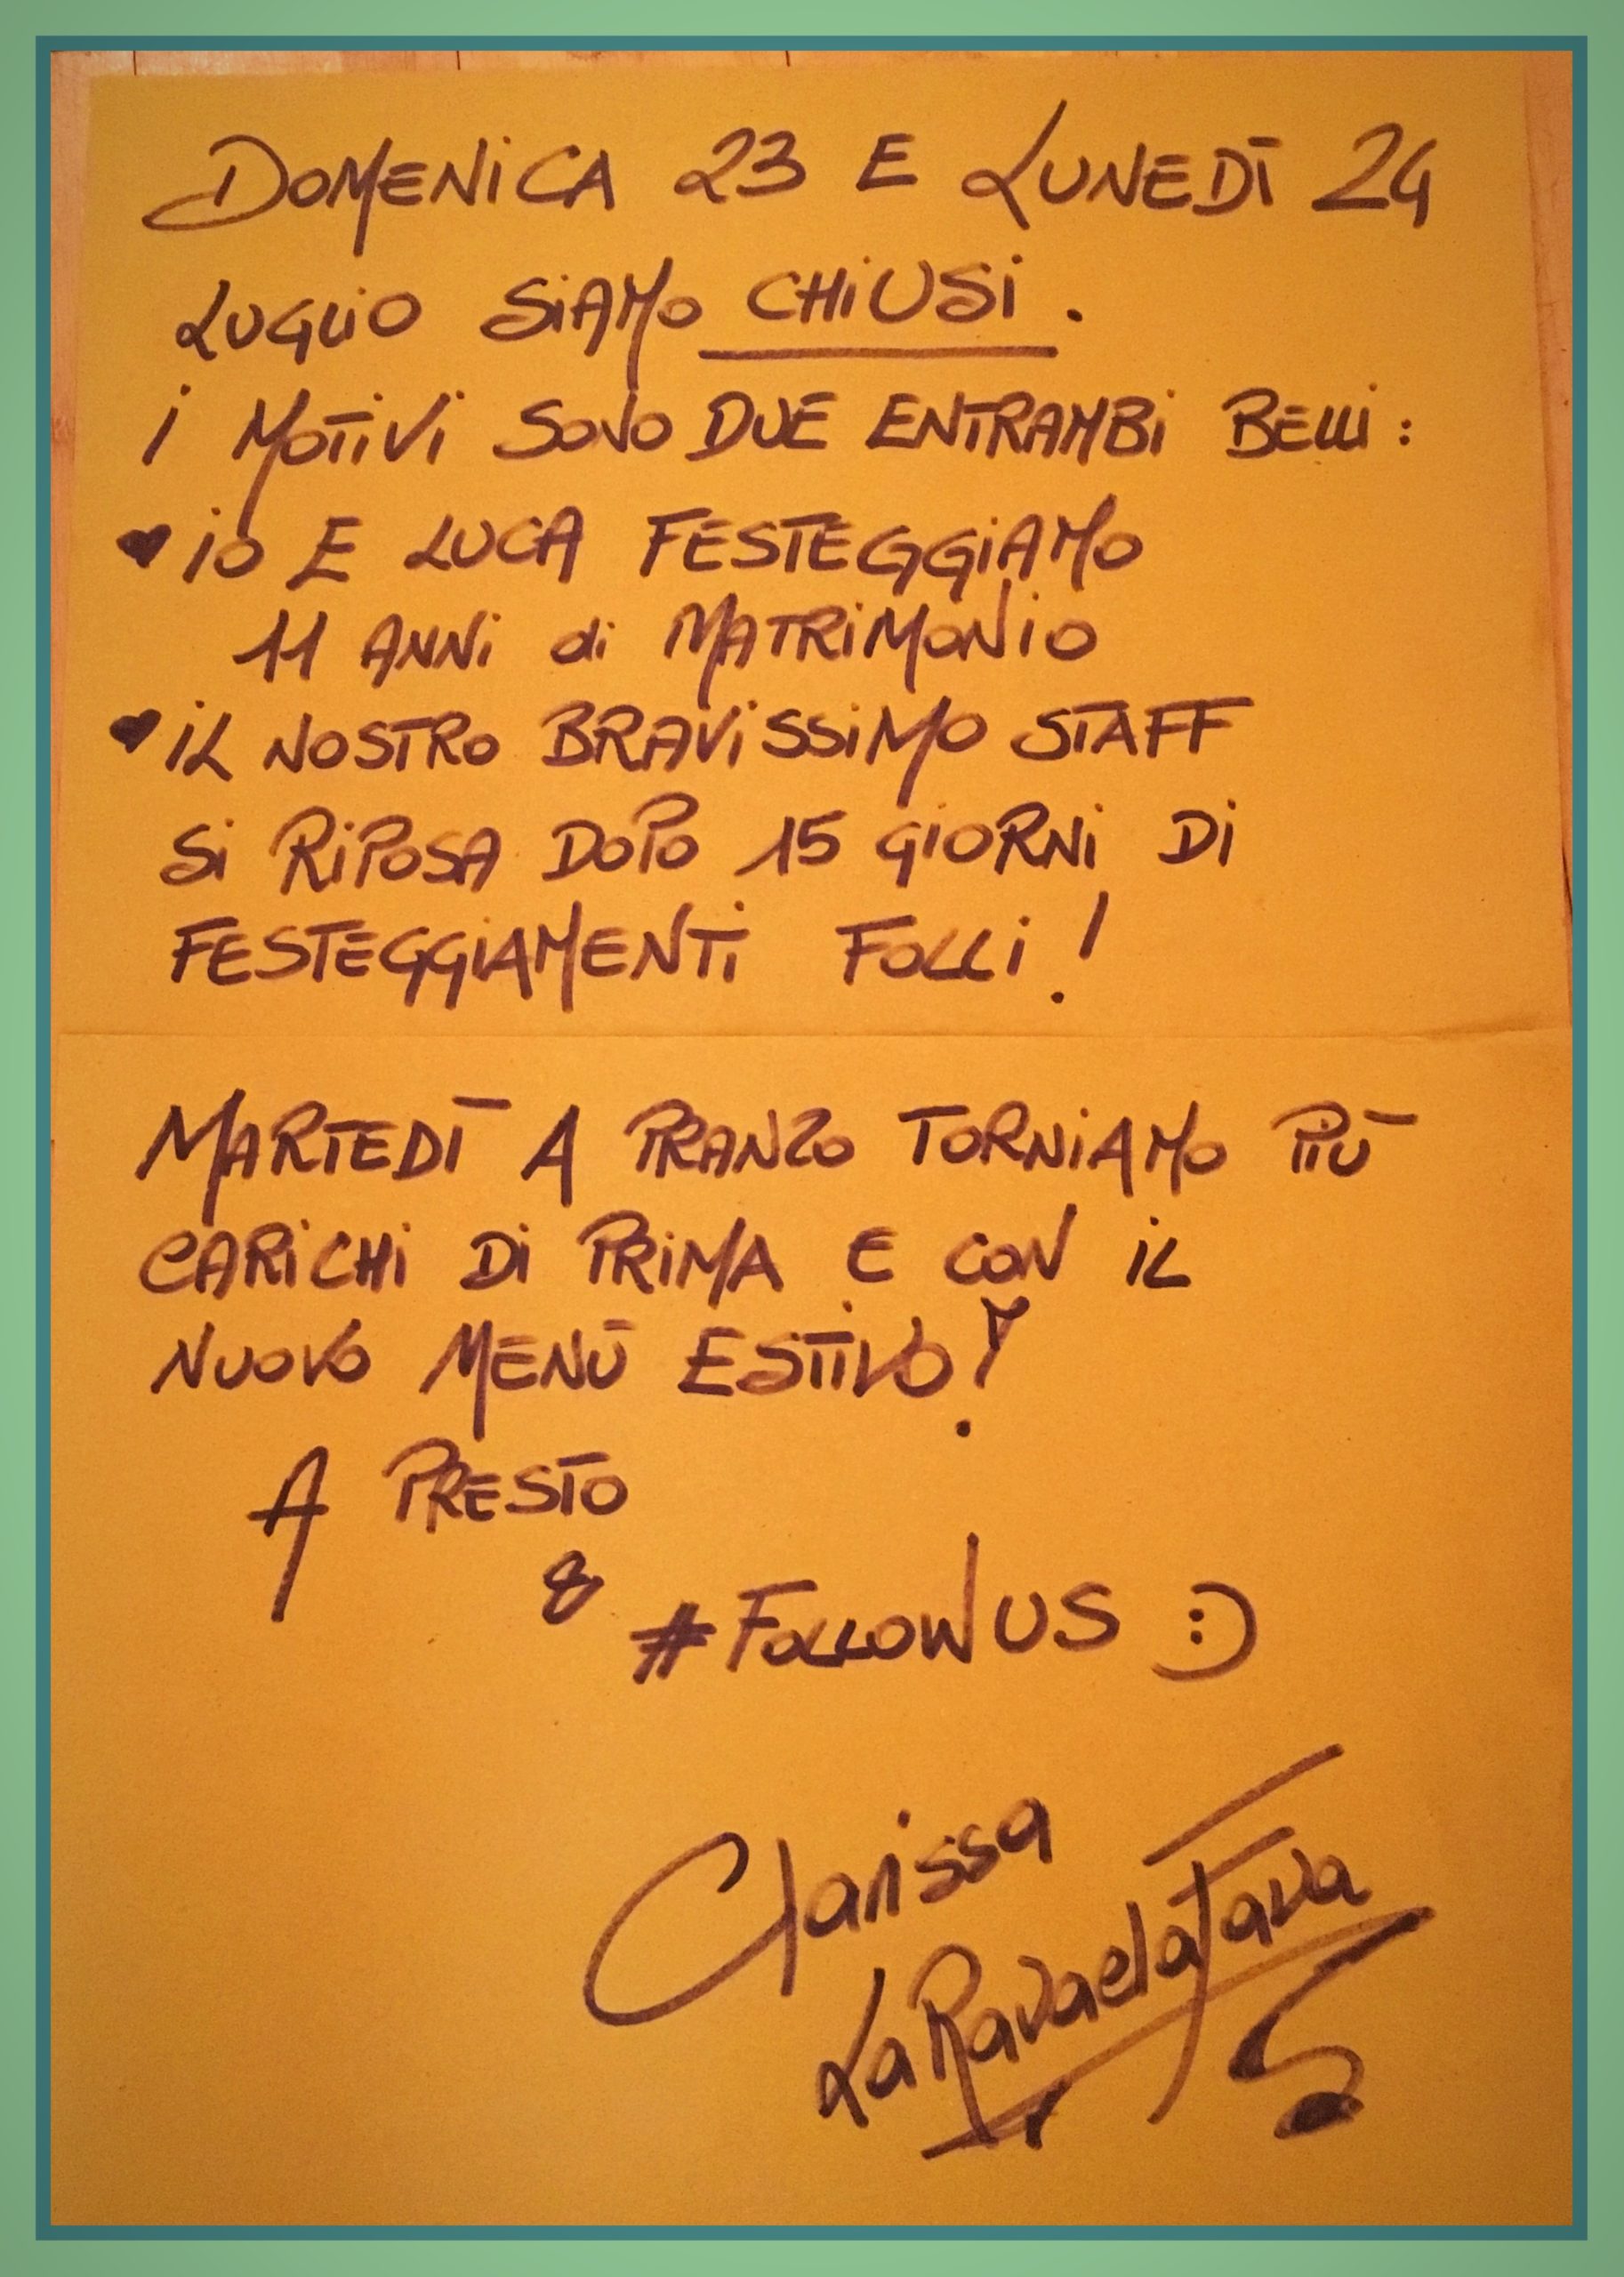 DOMENiCA 23 E LUNEDÌ 24
LUGLIO SiAMO CHiUSi.
i MOTiVi SONO DUE ENTRAMBi BELLi:
♥ iO E LUCA FESTEGGiAMO
11 ANNi di MATRiMONiO
♥ iL NOSTRO BRAViSSiMO STAFF
Si RiPOSA DOPO 15 GiORNi Di
FESTEGGiAMENTi FOLLi!
MARTEDÌ A PRANZO TORNiAMO PiÙ
CARiCHi Di PRiMA E CON iL
NUOVO MENÙ ESTiVO!
A PRESTO
& #FOLLOWUS :)
Clarissa
LaRavaelaFava